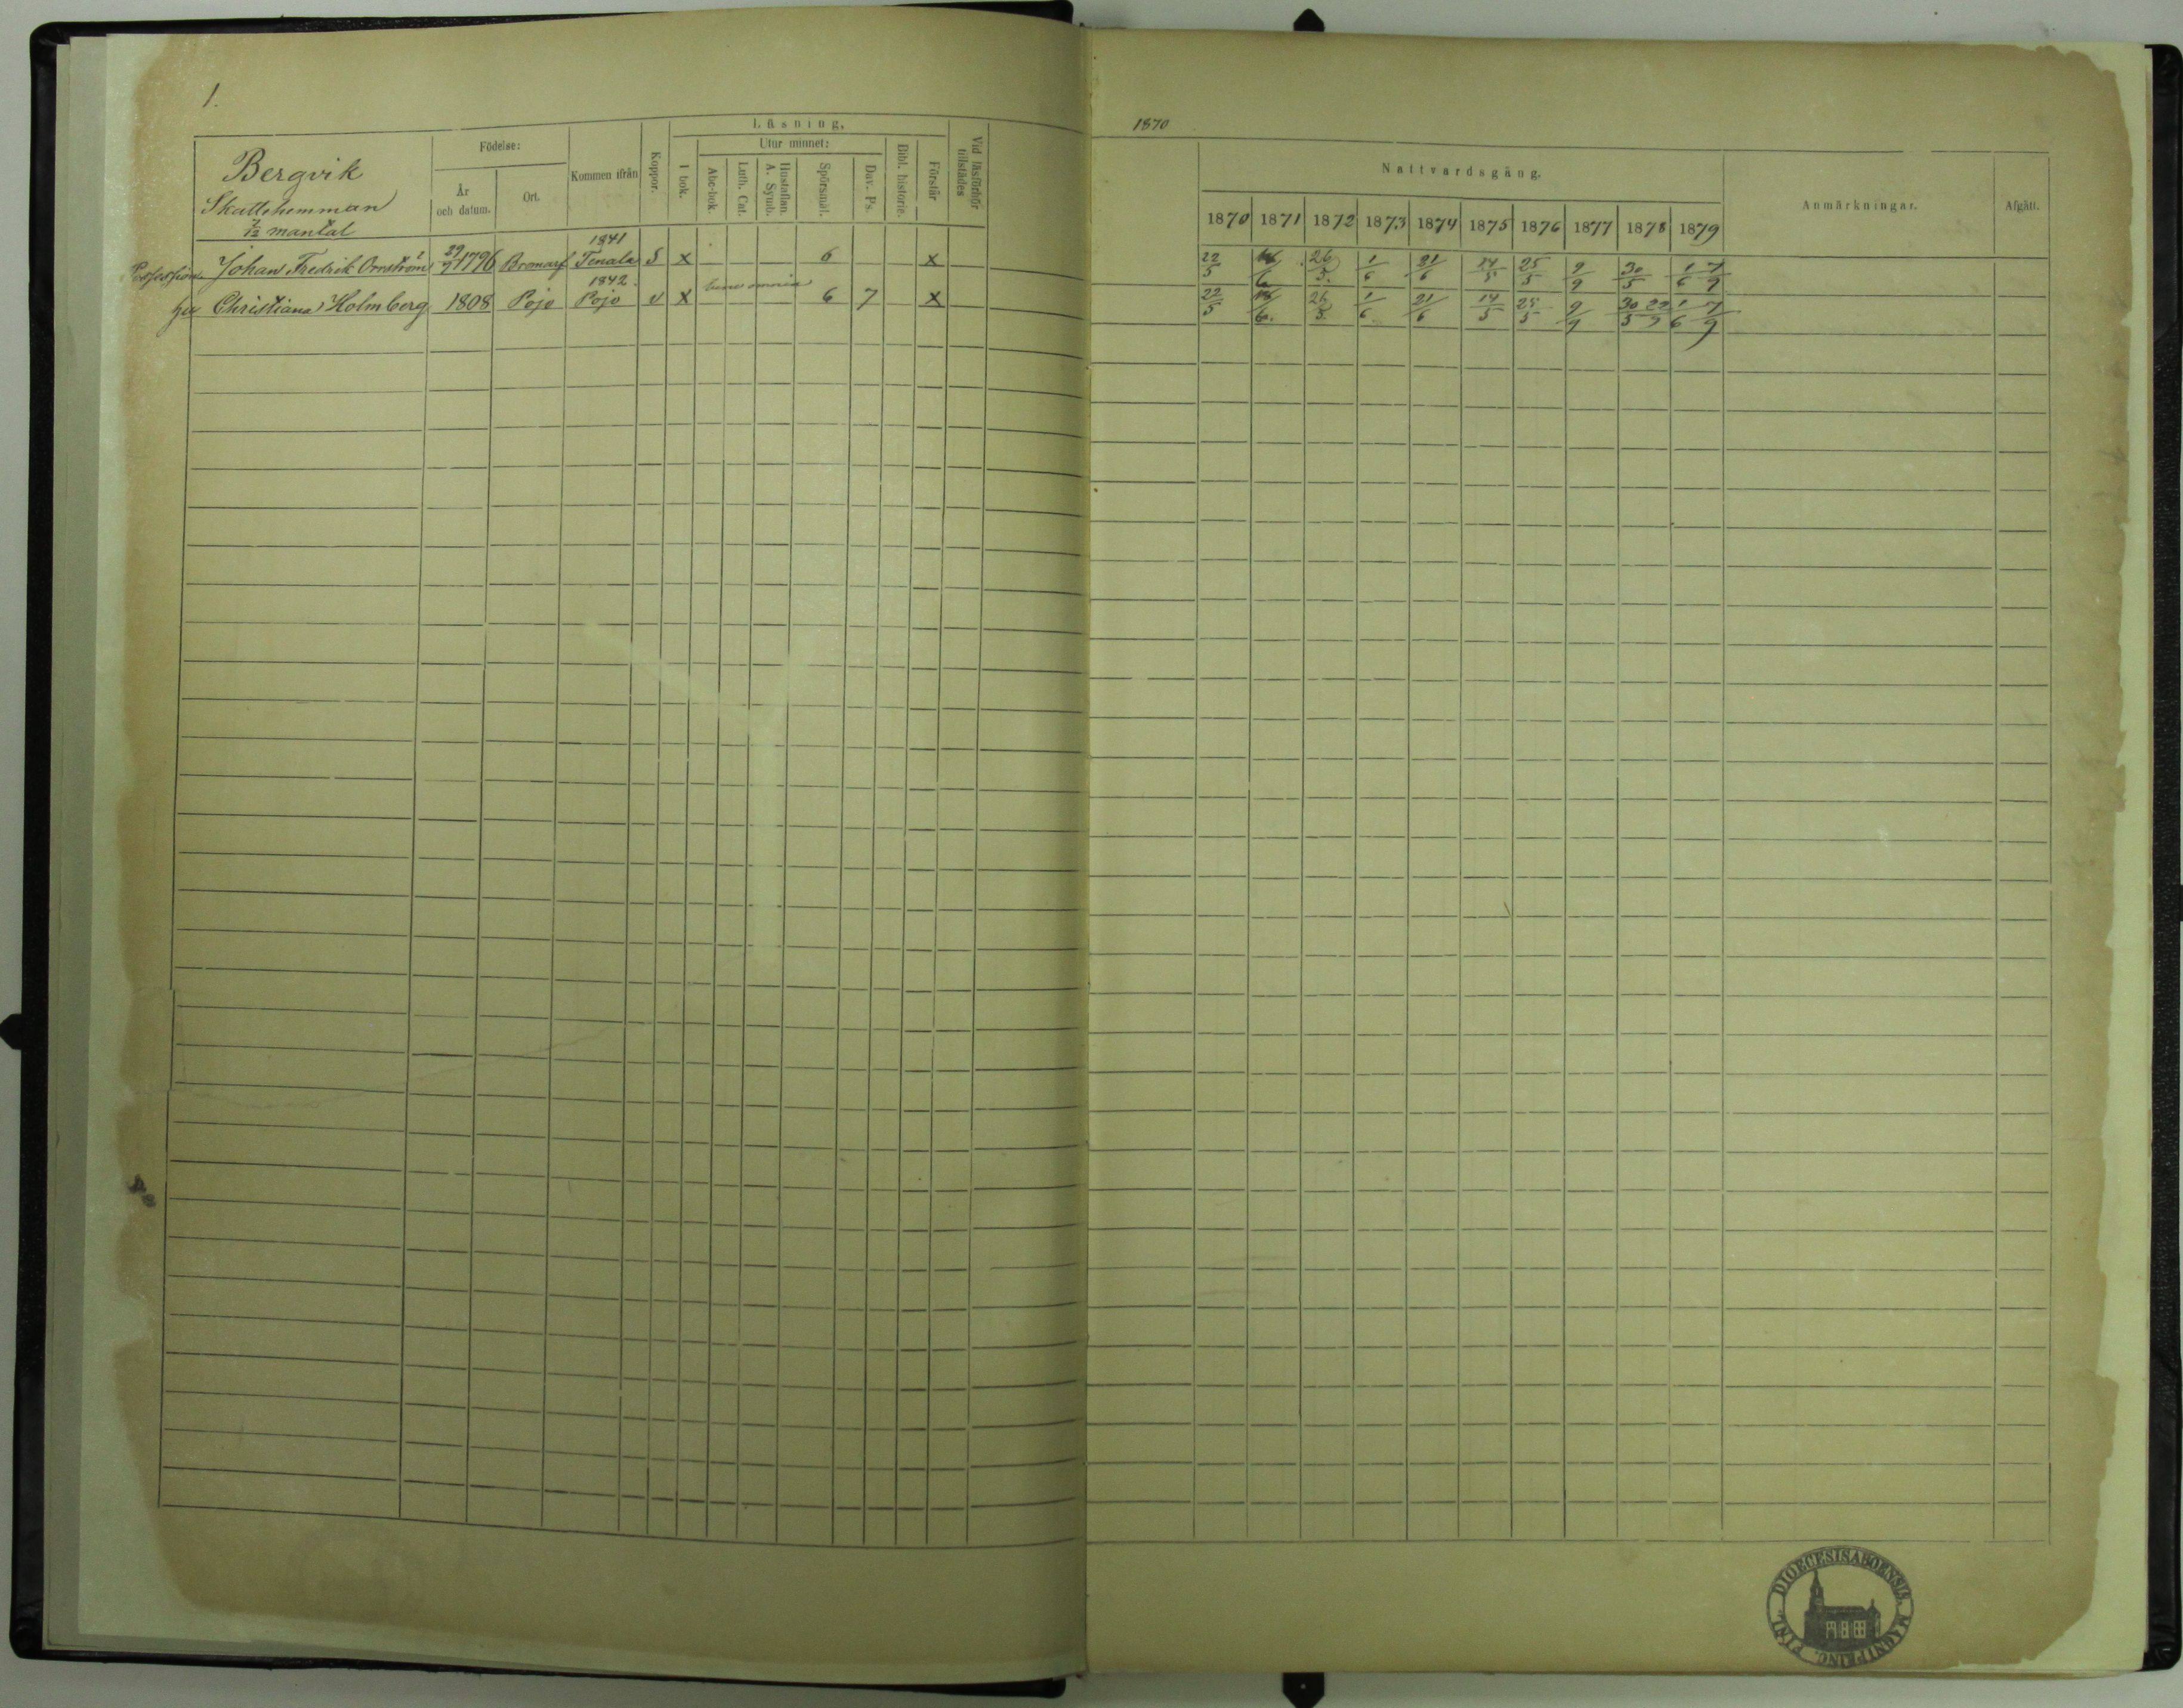 1.
1870
Läsning.
Födelse:
Utur minnet:
Bergvik
Skattehemman
7/12 mantal
År och datum.
Ort.
Kommen ifrån
Koppor.
I bok.
Abc-bok.
Luth. Cat.
Hustaflan. A. Symb.
Spörsmål.
Dav. Ps.
Bibl. historie.
Förstår
Vid läsförhör tillstädes
Nattvardsgång.
Anmärkningar.
Afgått.
1870 1871 1872 1873 1874 1875 1876 1877 1878 1879
1841
Johan Fredrik Ornström 1796 Bromarf Tenala S x 6 x 22/5 26/5. 1/6 21/6 14/5 25/5 9/9 30/5 1/6 7/9
1842.
hu Christiana Holmberg 1808 Pojo Pojo v x bene omnia 6 7 x 22/5 18/6. 26/5. 1/6 21/6 14/5 25/5 9/9 30/5 22/9 1/6 7/9
DIOECESIS ABOENSIS. MAGNI PRINC. FINL.